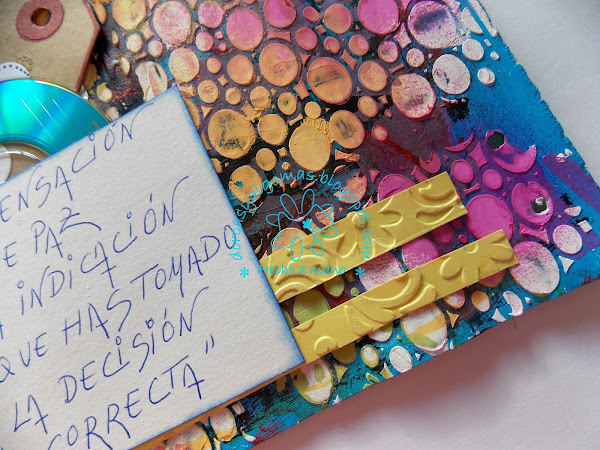 ENSACIÓN
E PAZ
A INDICACIÓN
QUE HAS TOMADO
LA DECISIÓN
CORRECTA"
* Hecho a mano *